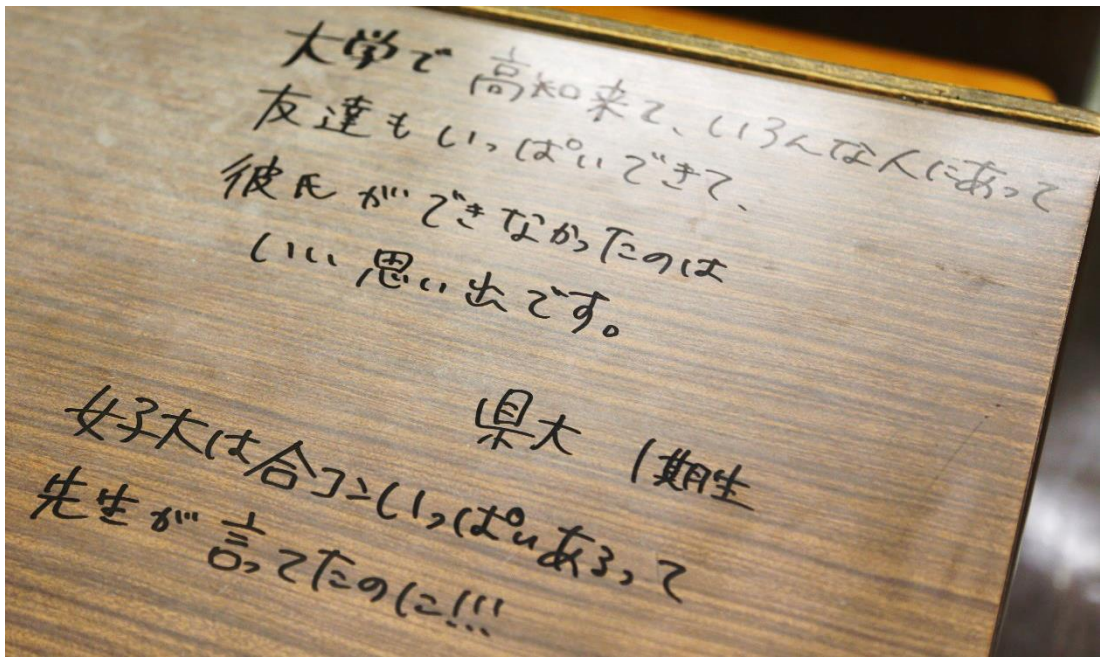 大学で高知来て、いろんな人にあって
友達もいっぱいできて、
彼氏ができなかったのは
いい思い出です。
県大 1期生
女子大は合コンいっぱいあるって
先生が言ってたのに!!!